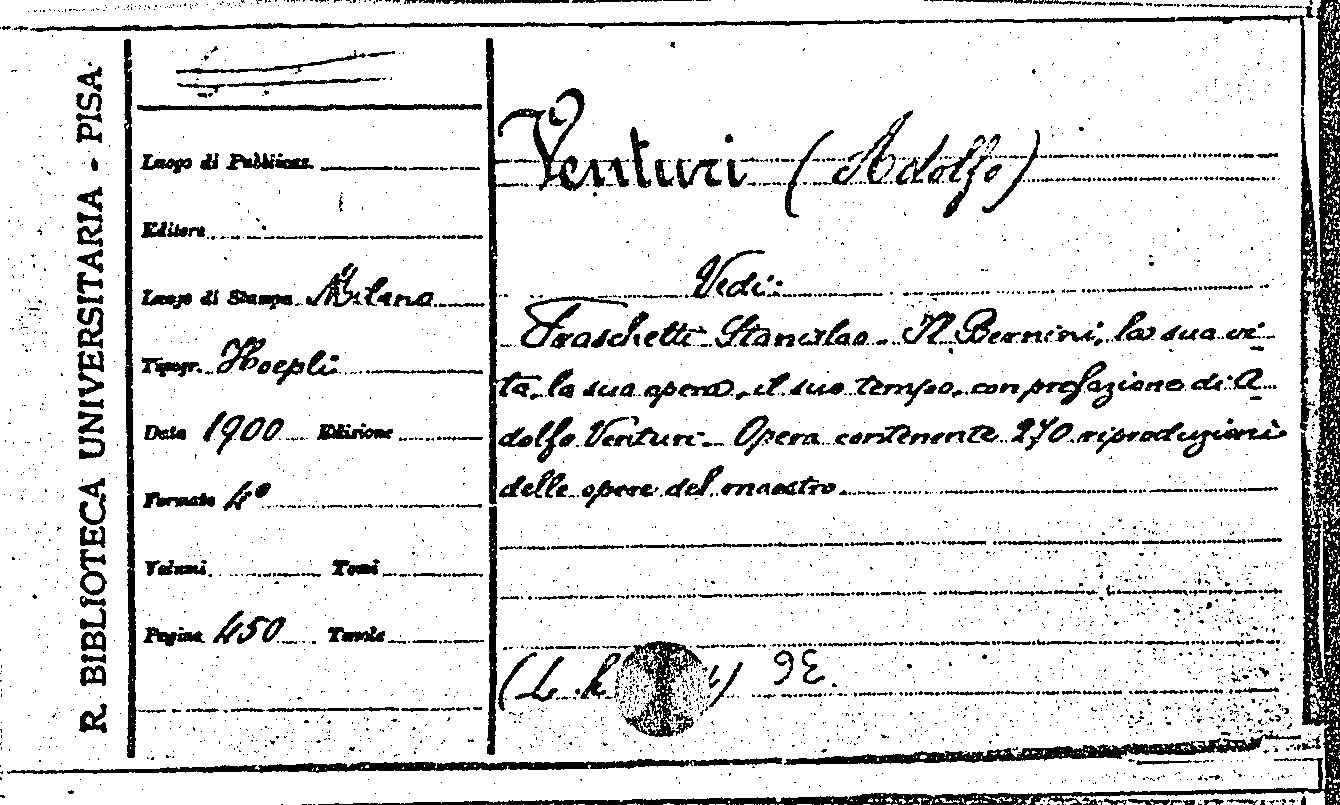 R. BIBLIOTECA UNIVERSITARIA - PISA
Luogo di Pubblicaz.
Editore
Luogo di Stampa Milano
Tipogr. Hoepli
Data 1900 Edizione
Formato 4°
Volumi Tomi
Pagine 450 Tavole
Venturi (Adolfo)
Vedi:
Fraschetti Stanislao. Il Bernini, la sua vi-
ta, la sua opera, il suo tempo, con prefazione di A-
dolfo Venturi. Opera contenente 270 riproduzioni
delle opere del maestro.